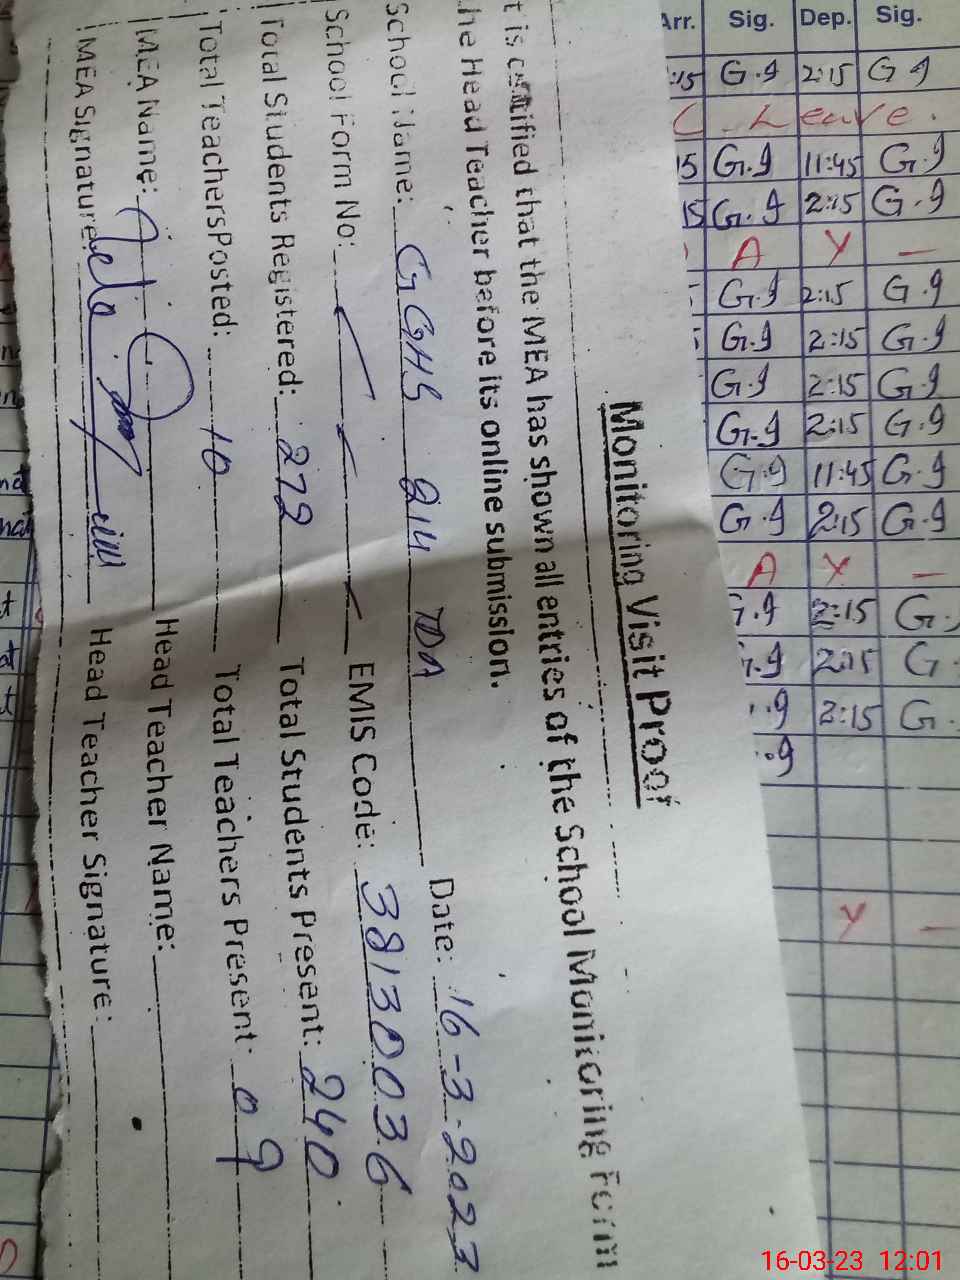 Monitoring Visit Proof
t is certified that the MEA has shown all entries of the School Monitoring Form
he Head Teacher before its online submission.
School Name: GGHS 214 TDA Date: 16-3-2023
School Form No: EMIS Code: 38130036
Total Students Registered: 272 Total Students Present: 240
Total Teachers Posted: 10 Total Teachers Present: 09
MEA Name: Head Teacher Name:
MEA Signature: Head Teacher Signature:
Arr. Sig. Dep. Sig.
:15 G.g 2:15 G g
C Leave.
15 G.g 11:45 G.g
15 G.g 2:15 G.g
- A Y -
G.g 2:15 G.g
G.g 2:15 G.g
G.g 2:15 G.g
G.g 2:15 G.g
G.g 11:45 G.g
G.g 2:15 G.g
A Y -
G.g 2:15 G.
.g 2:15 G
.g 2:15 G.
.g
Y -
16-03-23 12:01